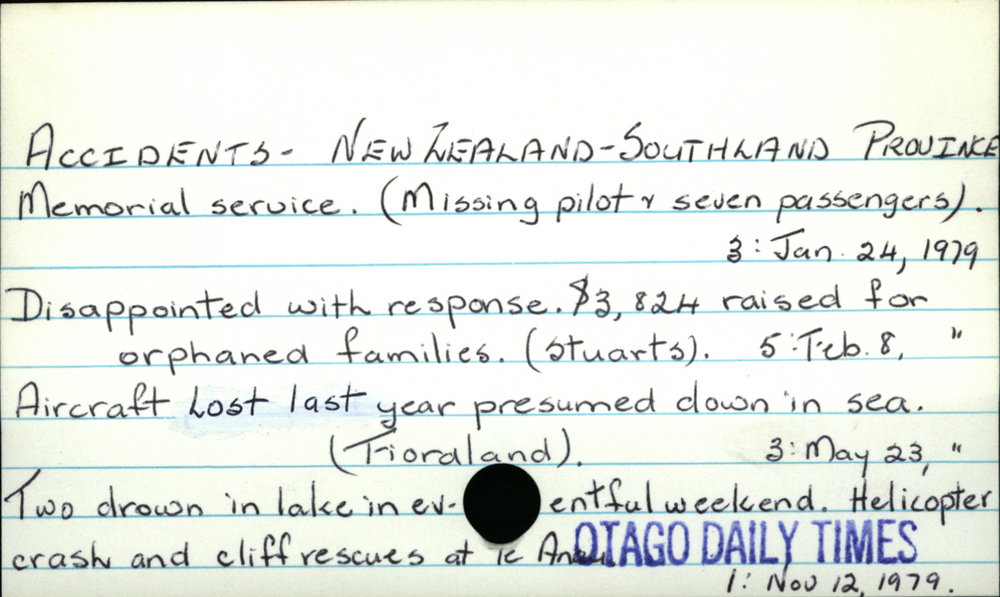 ACCIDENTS - NEW ZEALAND - SOUTHLAND PROVINCE
Memorial service. (Missing pilot & seven passengers).
3: Jan. 24, 1979
Disappointed with response. $3,824 raised for
orphaned families. (Stuarts). 5: Feb. 8, "
Aircraft Lost last year presumed down in sea.
(Fiordland). 3: May 23, "
Two drown in lake in ev- entful weekend. Helicopter
crash and cliff rescues at Te OTAGO DAILY TIMES
1: Nov 12, 1979.